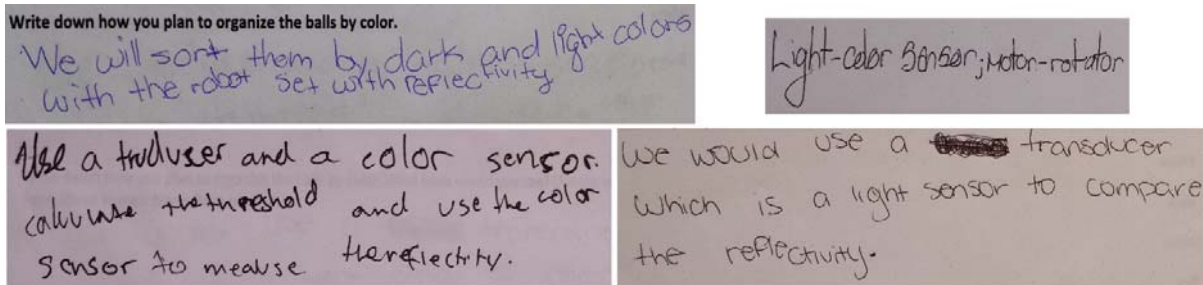 Write down how you plan to organize the balls by color.
We will sort them by dark and light colors
with the robot set with reflectivity
Light-color sensor; Motor-rotator
Use a truduser and a color sensor.
calculate the threshold and use the color
sensor to mealse the reflectirty.
We would use a transducer
which is a light sensor to compare
the reflectivity.